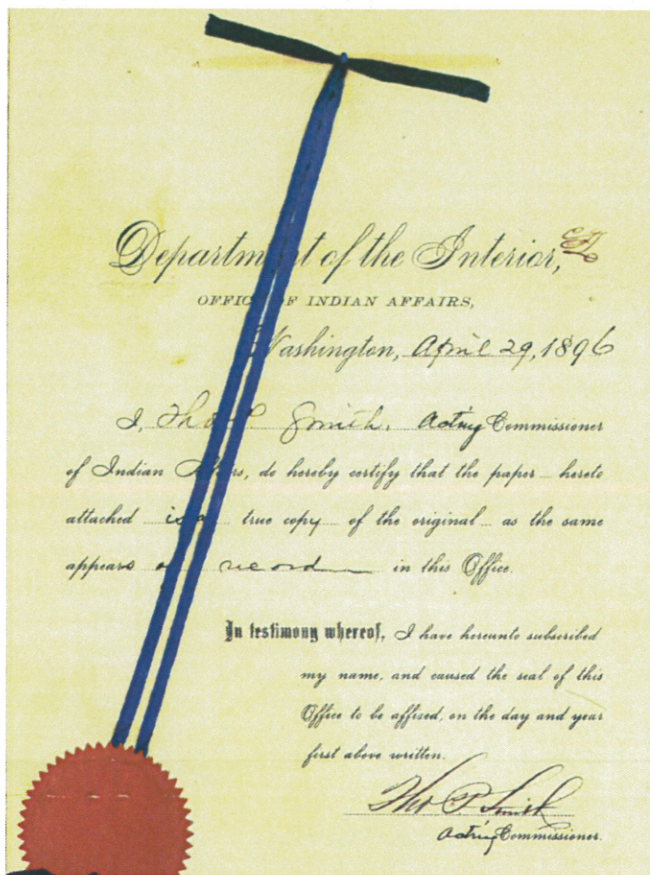 Department of the Interior,
OFFICE OF INDIAN AFFAIRS,
Washington, April 29, 1896
I, Tho P Smith, Acting Commissioner
of Indian Affairs, do hereby certify that the paper hereto
attached is a true copy of the original as the same
appears of record in this Office.
In testimony whereof, I have hereunto subscribed
my name, and caused the seal of this
Office to be affixed, on the day and year
first above written.
Tho P Smith
Acting Commissioner.